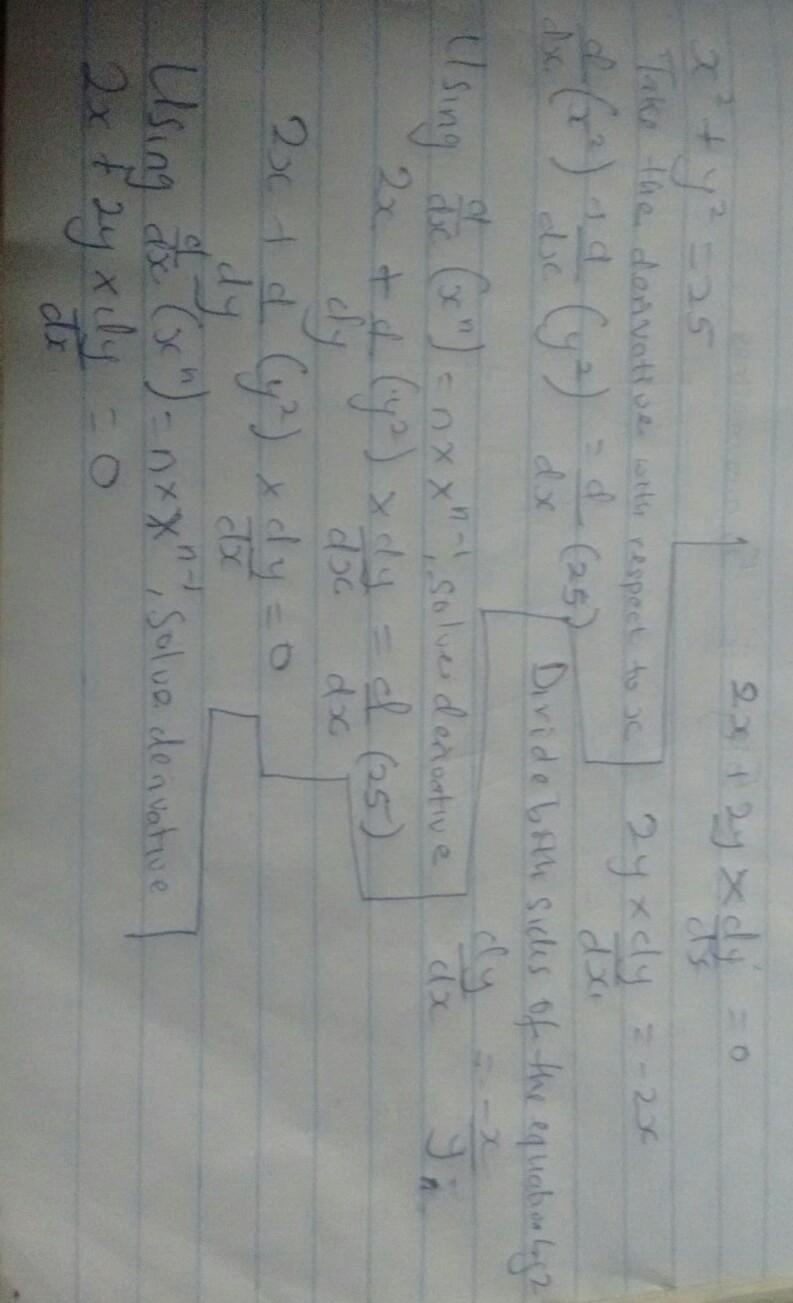 x² + y² = 25
Take the derivative with respect to x
d/dx (x²) + d/dx (y²) = d/dx (25)
Using d/dx (xⁿ) = n × xⁿ⁻¹, solve derivative
2x + d/dy (y²) × dy/dx = d/dx (25)
2x + d/dy (y²) × dy/dx = 0
Using d/dx (xⁿ) = n × xⁿ⁻¹, solve derivative
2x + 2y × dy/dx = 0
2x + 2y × dy/dx = 0
2y × dy/dx = -2x
Divide both sides of the equation by 2
dy/dx = -x/y